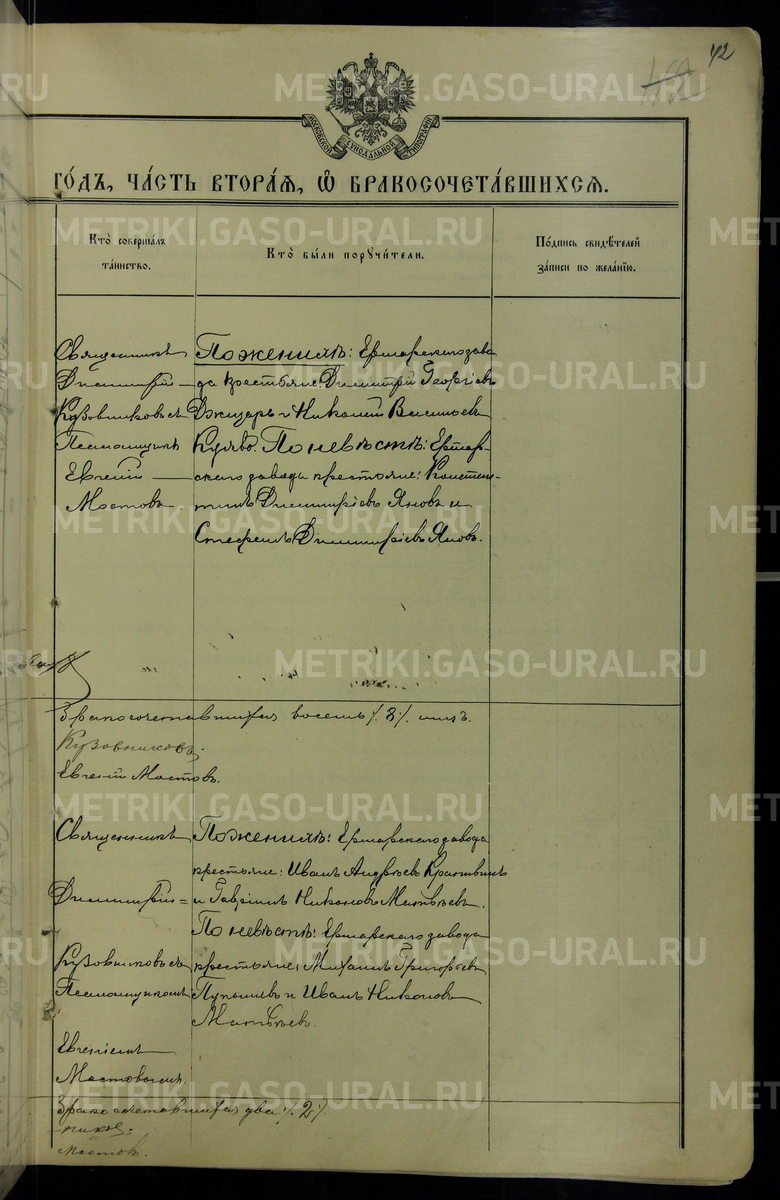 42
МОСКОВСКОЙ СУНОДАЛЬНОЙ ТИПОГРАФIИ
ГОДЪ, ЧАСТЬ ВТОРАЯ, Ѡ БРАКОСОЧЕТАВШИХСЯ.
Кто совершалъ таинство.
Кто были поручители.
Подпись свидѣтелей записи по желанiю.
Священникъ
Димитрiй
Кузовниковъ съ
Псаломщикъ
Евгенiй
Мостовъ.
По женихѣ: Ертарскаго заво
да крестьяне: Димитрiй Георгiевъ
и Николай Васильевъ
По невѣстѣ: Ертар-
скаго завода крестьяне: Констан-
тинъ Димитрiевъ Яновъ и
Стефанъ Димитрiевъ Яновъ.
Бракосочетавшихся восемь /8/ лицъ.
Кузовниковъ.
Евгенiй Мостовъ.
Священникъ
Димитрiй
Кузовниковъ съ
Псаломщикомъ
Евгенiемъ
Мостовымъ.
По женихѣ: Ертарскаго завода
крестьяне: Иванъ Андрѣевъ
и Гаврiилъ Никоновъ Матвѣевъ.
По невѣстѣ: Ертарскаго завода
крестьяне: Михаилъ Григорьевъ
и Иванъ Никоновъ
Матвѣевъ.
Бракосочетавшихся два /2/
Мостовъ.
METRIKI.GASO-URAL.RU